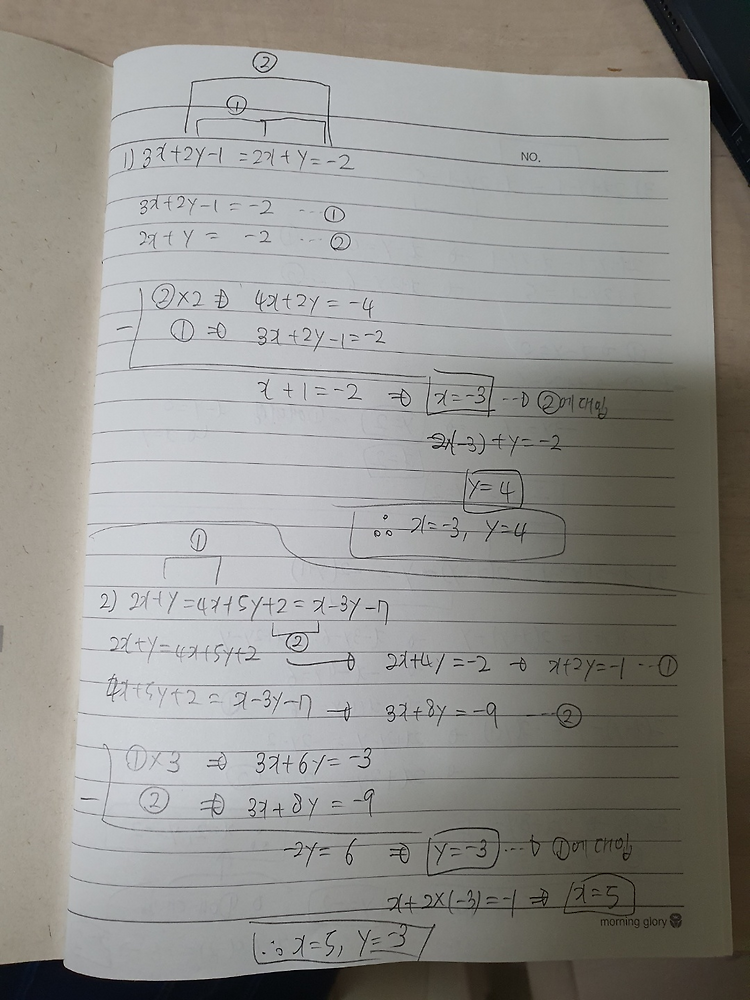 ②
①
1) 3x+2y-1=2x+y=-2
NO.
3x+2y-1=-2 ... ①
2x+y= -2 ... ②
②×2 ⇒ 4x+2y=-4
- ① ⇒ 3x+2y-1=-2
x+1=-2 ⇒ x=-3 ... → ②에 대입
2(-3)+y=-2
y=4
∴ x=-3, y=4
①
2) 2x+y=4x+5y+2=x-3y-7
②
2x+y=4x+5y+2 → 2x+4y=-2 → x+2y=-1 ... ①
4x+5y+2=x-3y-7 → 3x+8y=-9 ... ②
①×3 ⇒ 3x+6y=-3
- ② ⇒ 3x+8y=-9
-2y=6 ⇒ y=-3 ... → ①에 대입
x+2×(-3)=-1 ⇒ x=5
morning glory
∴ x=5, y=-3